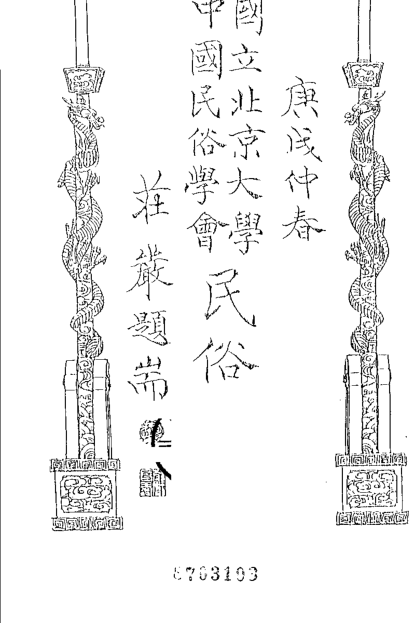 庚戌仲春
國立北京大學
中國民俗學會民俗
莊嚴題耑
8703193